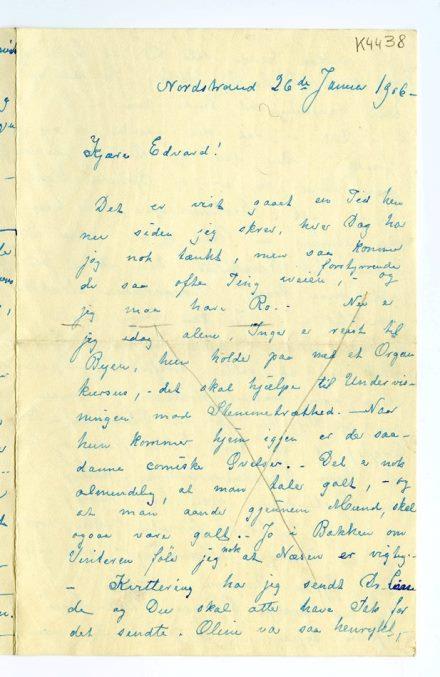 K4438
Nordstrand 26de Januar 1906 –
Kjære Edvard!
Det er vist gaaet en Tid hen
nu siden jeg skrev, hver Dag har
jeg nok tænkt, men saa kommer
der saa ofte Ting iveien, – og
forstyrrende
jeg maa have Ro. – Nu er
jeg idag alene, Inger er reist til
Byen, hun holder paa med et Organ
kursus, – det skal hjælpe til Undervis-
ningen mod Stemmetræthed. – Naar
hun kommer hjem iggen er der saa-
danne comiske Øvelser. – Det er nok
almindelig, at man taler galt, – og
at man aander gjennem Mund, skal
ogsaa være galt. – Jo i Bakken om
Vinteren føler jeg nok at Næsen er vigtig. –
– Kvittering har jeg sendt Dr.
de og Du skal atte have Tak for
det sendte. Oline var saa henrykt, –